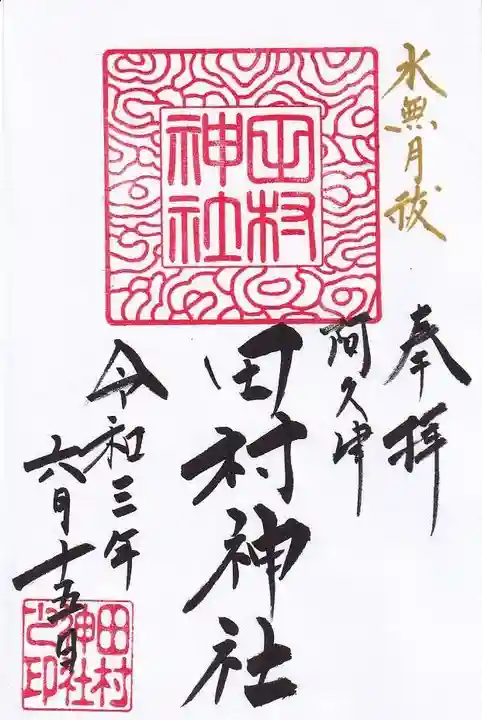 水無月祓
奉拝
阿久津
田村神社
田村
神社
令和三年
六月十五日
田村
神社
之印